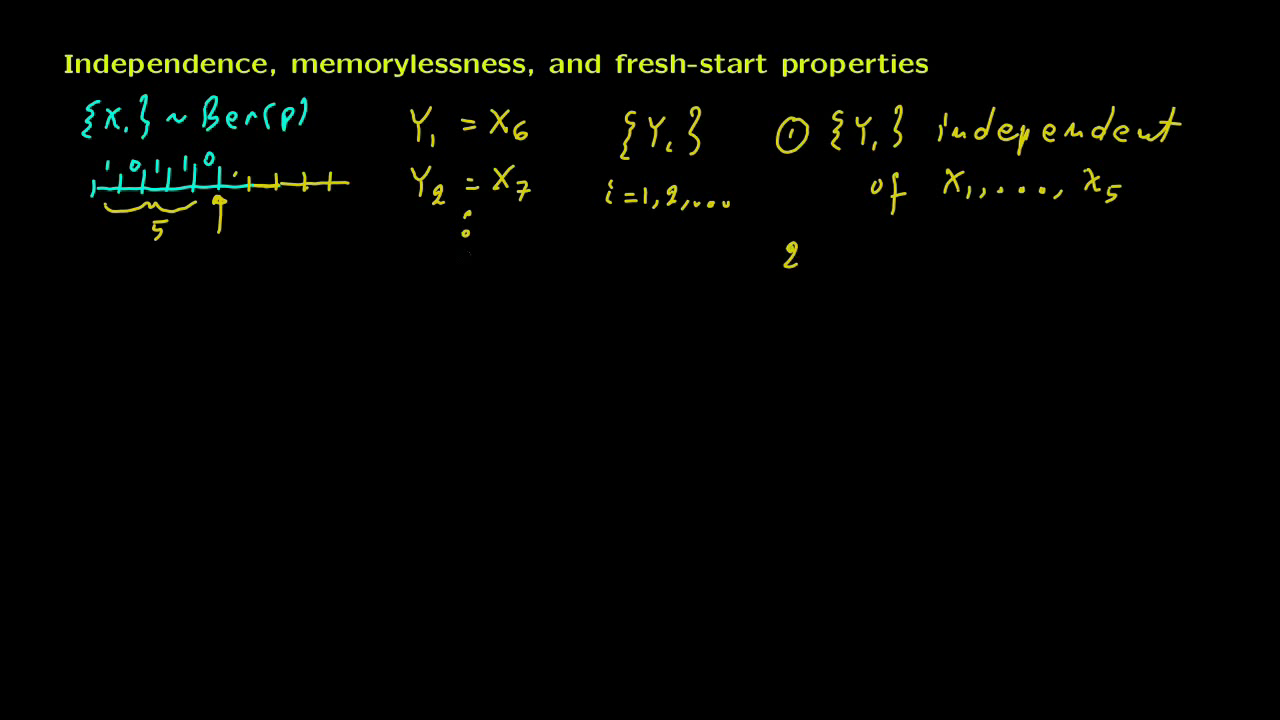 Independence, memorylessness, and fresh-start properties
{X_i} ~ Ber(p)
1 0 1 1 0
5
Y_1 = X_6
Y_2 = X_7
⋮
{Y_i}
i = 1, 2, ...
① {Y_i} independent
of X_1, ..., X_5
2